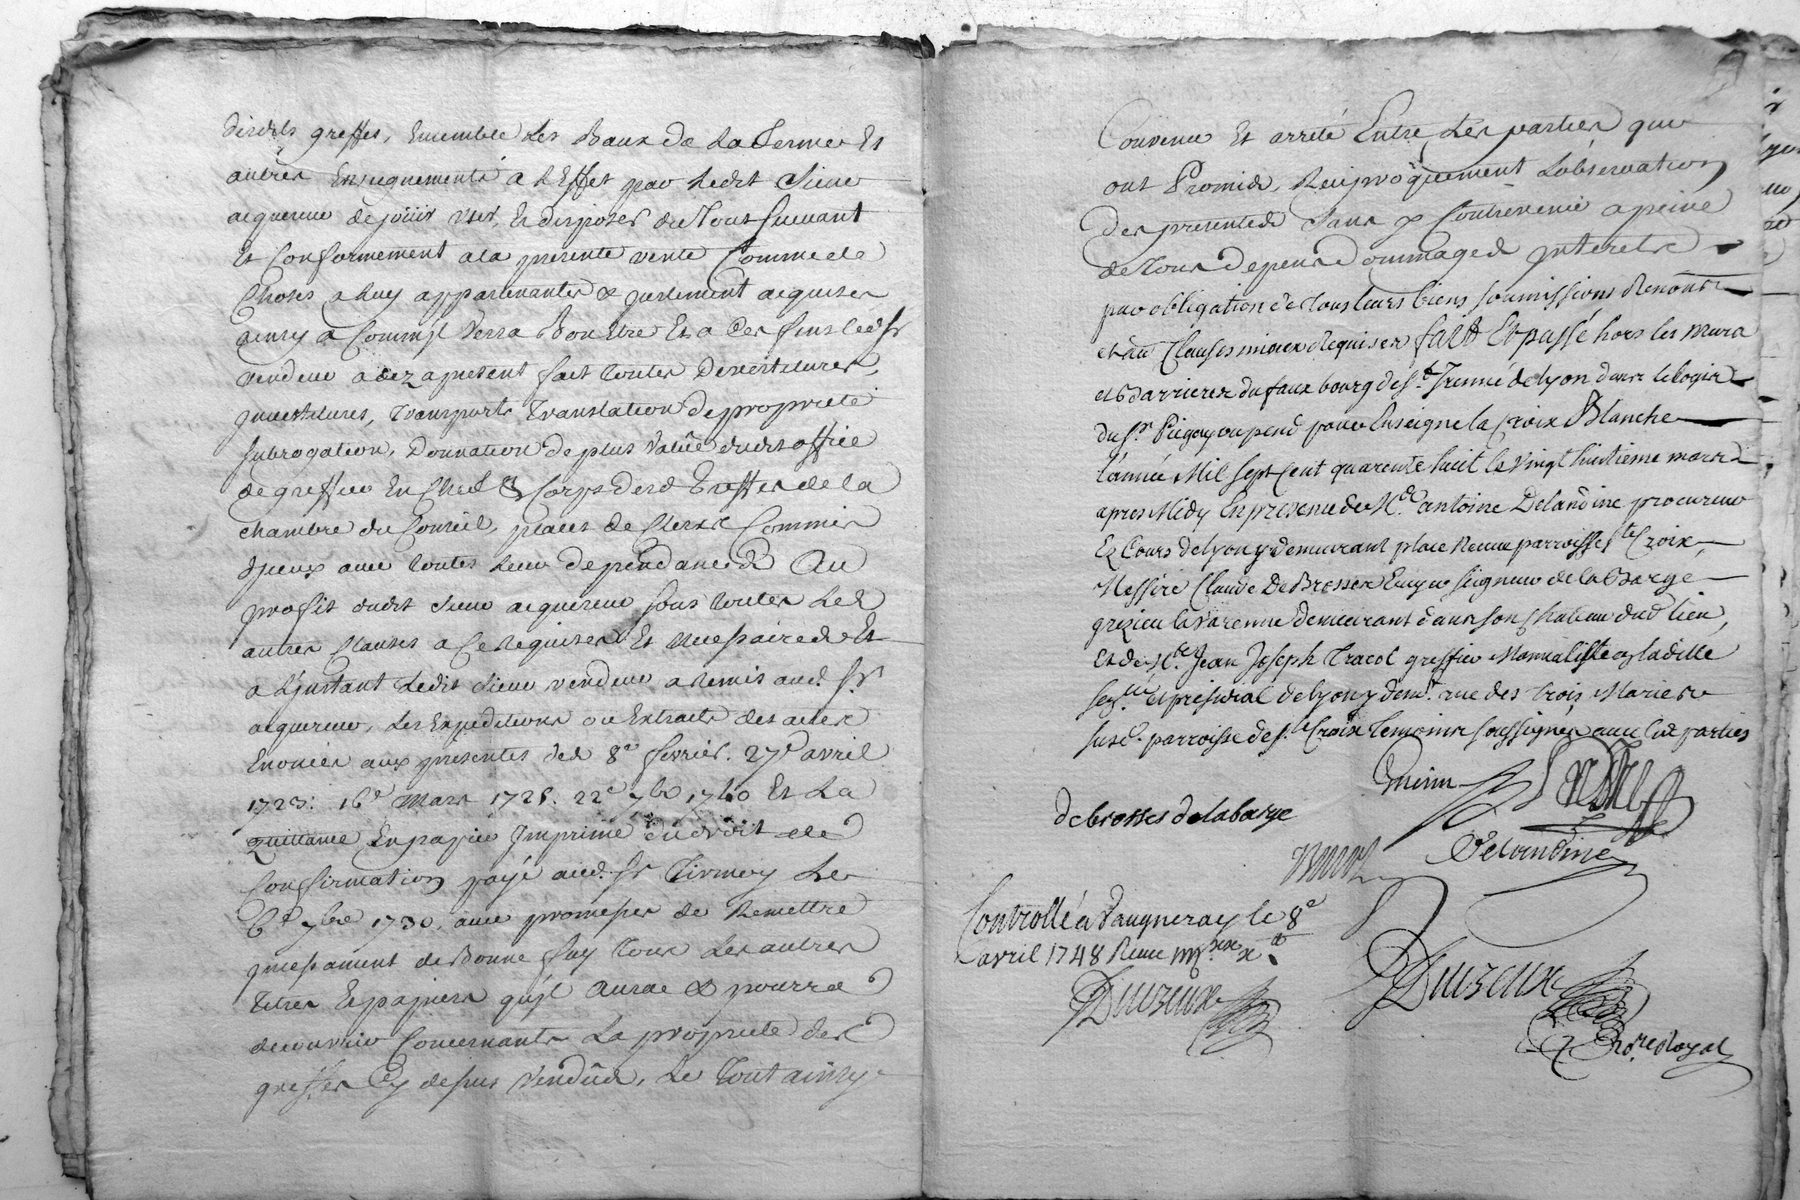 desdits greffes, Ensemble Les Baux de La ferme Et
autres Enseignements a L'Effet par Ledit Sieur
acquereur de joüir user, Et disposer de Tout suivant
Et Conformement a la presente vente Comme de
Choses a Luy appartenantes & justement acquises
ainsy a Comm'jl verra Bon Etre Et a Ces fins led. Sr
vendeur a dez apresent fait Toutes Devestitures,
jnvestitures, Transports Translation de proprieté
subrogation, Donnation de plus valüe dudit office
de greffier En Chef & Corps desd. Greffes de la
chambre du Conseil, places de Clercs Commis
d'jceux avec Toutes Leur dependances Au
profit dudit Sieur acquereur sous Toutes Les
autres Clauses a Ce Requises Et Necessaires Et
a L'jnstant Ledit Sieur vendeur a Remis aud. Sr.
acquereur, Les Expeditions ou Extraits des actes
Enoncés aux presentes des 8e fevrier. 27e avril
1723: 16e Mars 1726. 22e 7bre 1740 Et La
Quittance En papier Jmprimé du droit de
Confirmation payé aud. Sr Tirmoy Le
6e 7bre 1730, avec promesses de Remettre
jncessament de Bonne foy Tous Les autres
Titres Et papiers qu'jl aura & pourra
decouvrir Concernants La proprieté des
greffes Cy dessus Vendûs, Le Tout ainsy
Convenu Et arrété Entre Les parties qui
ont Promis, Reciproquement L'observation
Des presentes Sans y Contrevenir a peine
de Tous depens Dommages jnterets
par obligation de Tous leurs biens soumissions Renonc.
et au Clauses mieux Requises fait Et passé hors les murs
et Barrieres du faux bourg de St. Irenné de Lyon dans le logis
du Sr. Pigay ou pend pour Enseigne la Croix Blanche
l'année Mil sept Cent quarente huit le vingt huitieme mars
apres Midy En presence de Me. antoine Delandine procureur
Ez Cours de Lyon y demeurant place Neuve parroisse Ste Croix,
Messire Claude De Brosses Ecuyer seigneur de la Barge
grezieu la varenne demeurant dans son Chateau dud. lieu,
Et de Me. Jean Joseph Tracol greffier Mannaliste en ladite
sen.ée et presidial de Lyon y dem.t rue des trois Maries
susd. parroisse de Ste Croix Temoins soussignés avec les parties
debrosses delabarge
Delandine
Controllé a Vaugneray le 8e
avril 1748 Receu
Duvzeux
Duvzeux
No.re Royal